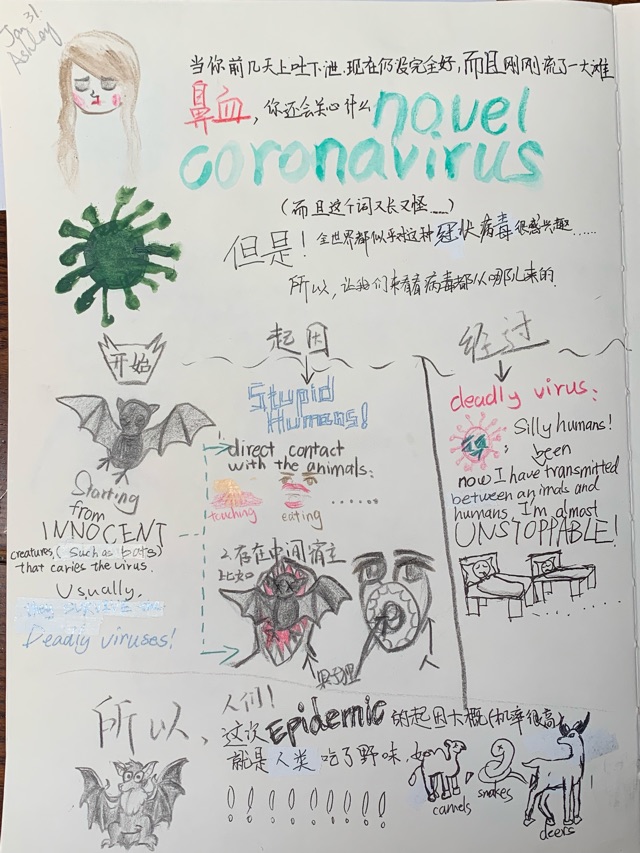 Jan 31.
Ashley
当你前几天上吐下泄.现在仍没完全好,而且刚刚流了一大滩
鼻血,你还会关心什么 novel
coronavirus
(而且这个词又长又怪……)
但是!全世界都似乎对这种冠状病毒很感兴趣……
所以,让我们来看看病毒都从哪儿来的.
开始
起因
经过
Starting
from
INNOCENT
creatures, (such as bats)
that caries the virus.
Usually,
Deadly viruses!
Stupid
Humans!
direct contact
with the animals:
touching
eating
......
2.存在中间宿主
比如
果子狸
deadly virus:
Silly humans!
been
now I have transmitted
between animals and
humans. I'm almost
UNSTOPPABLE!
所以,
人们!
这次Epidemic的起因大概(机率很高)
就是人类吃了野味,如
camels,
snakes
deers
!!!!!!!!!